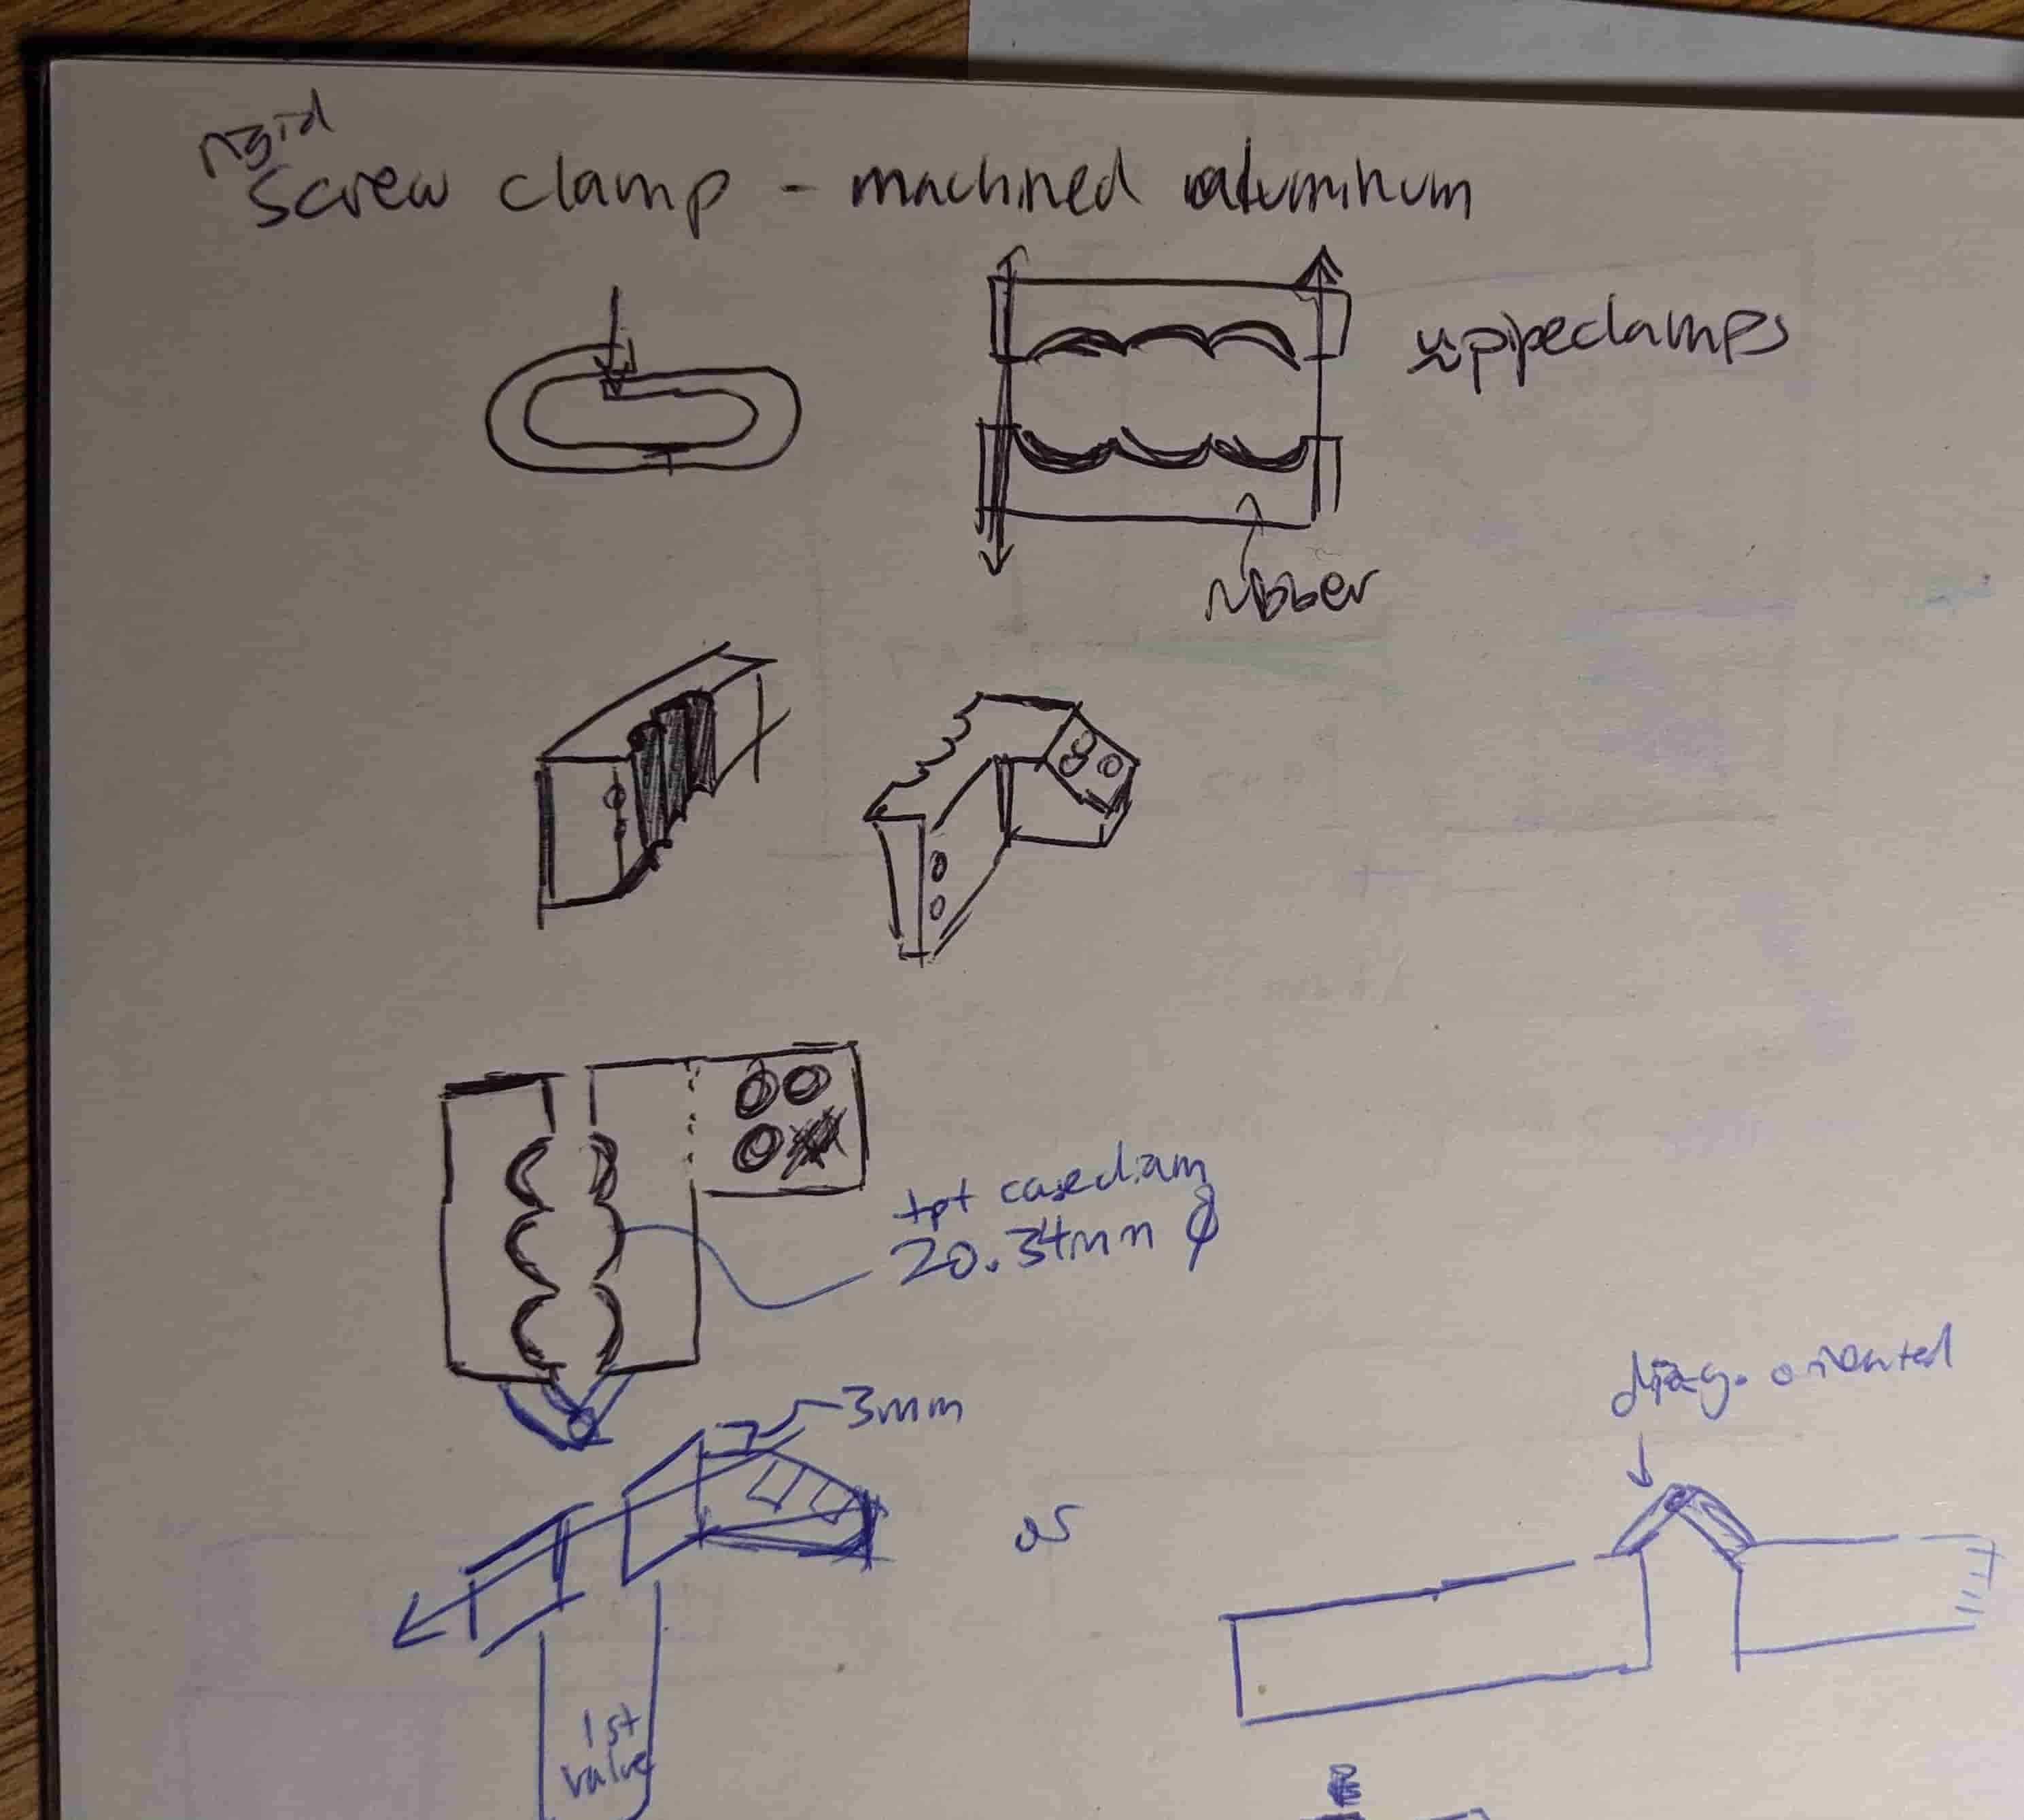 rigid
Screw clamp - machined aluminum
rubber
tpt case diam
20.34mm ϕ
3mm
diag. oriented
or
1st
valve